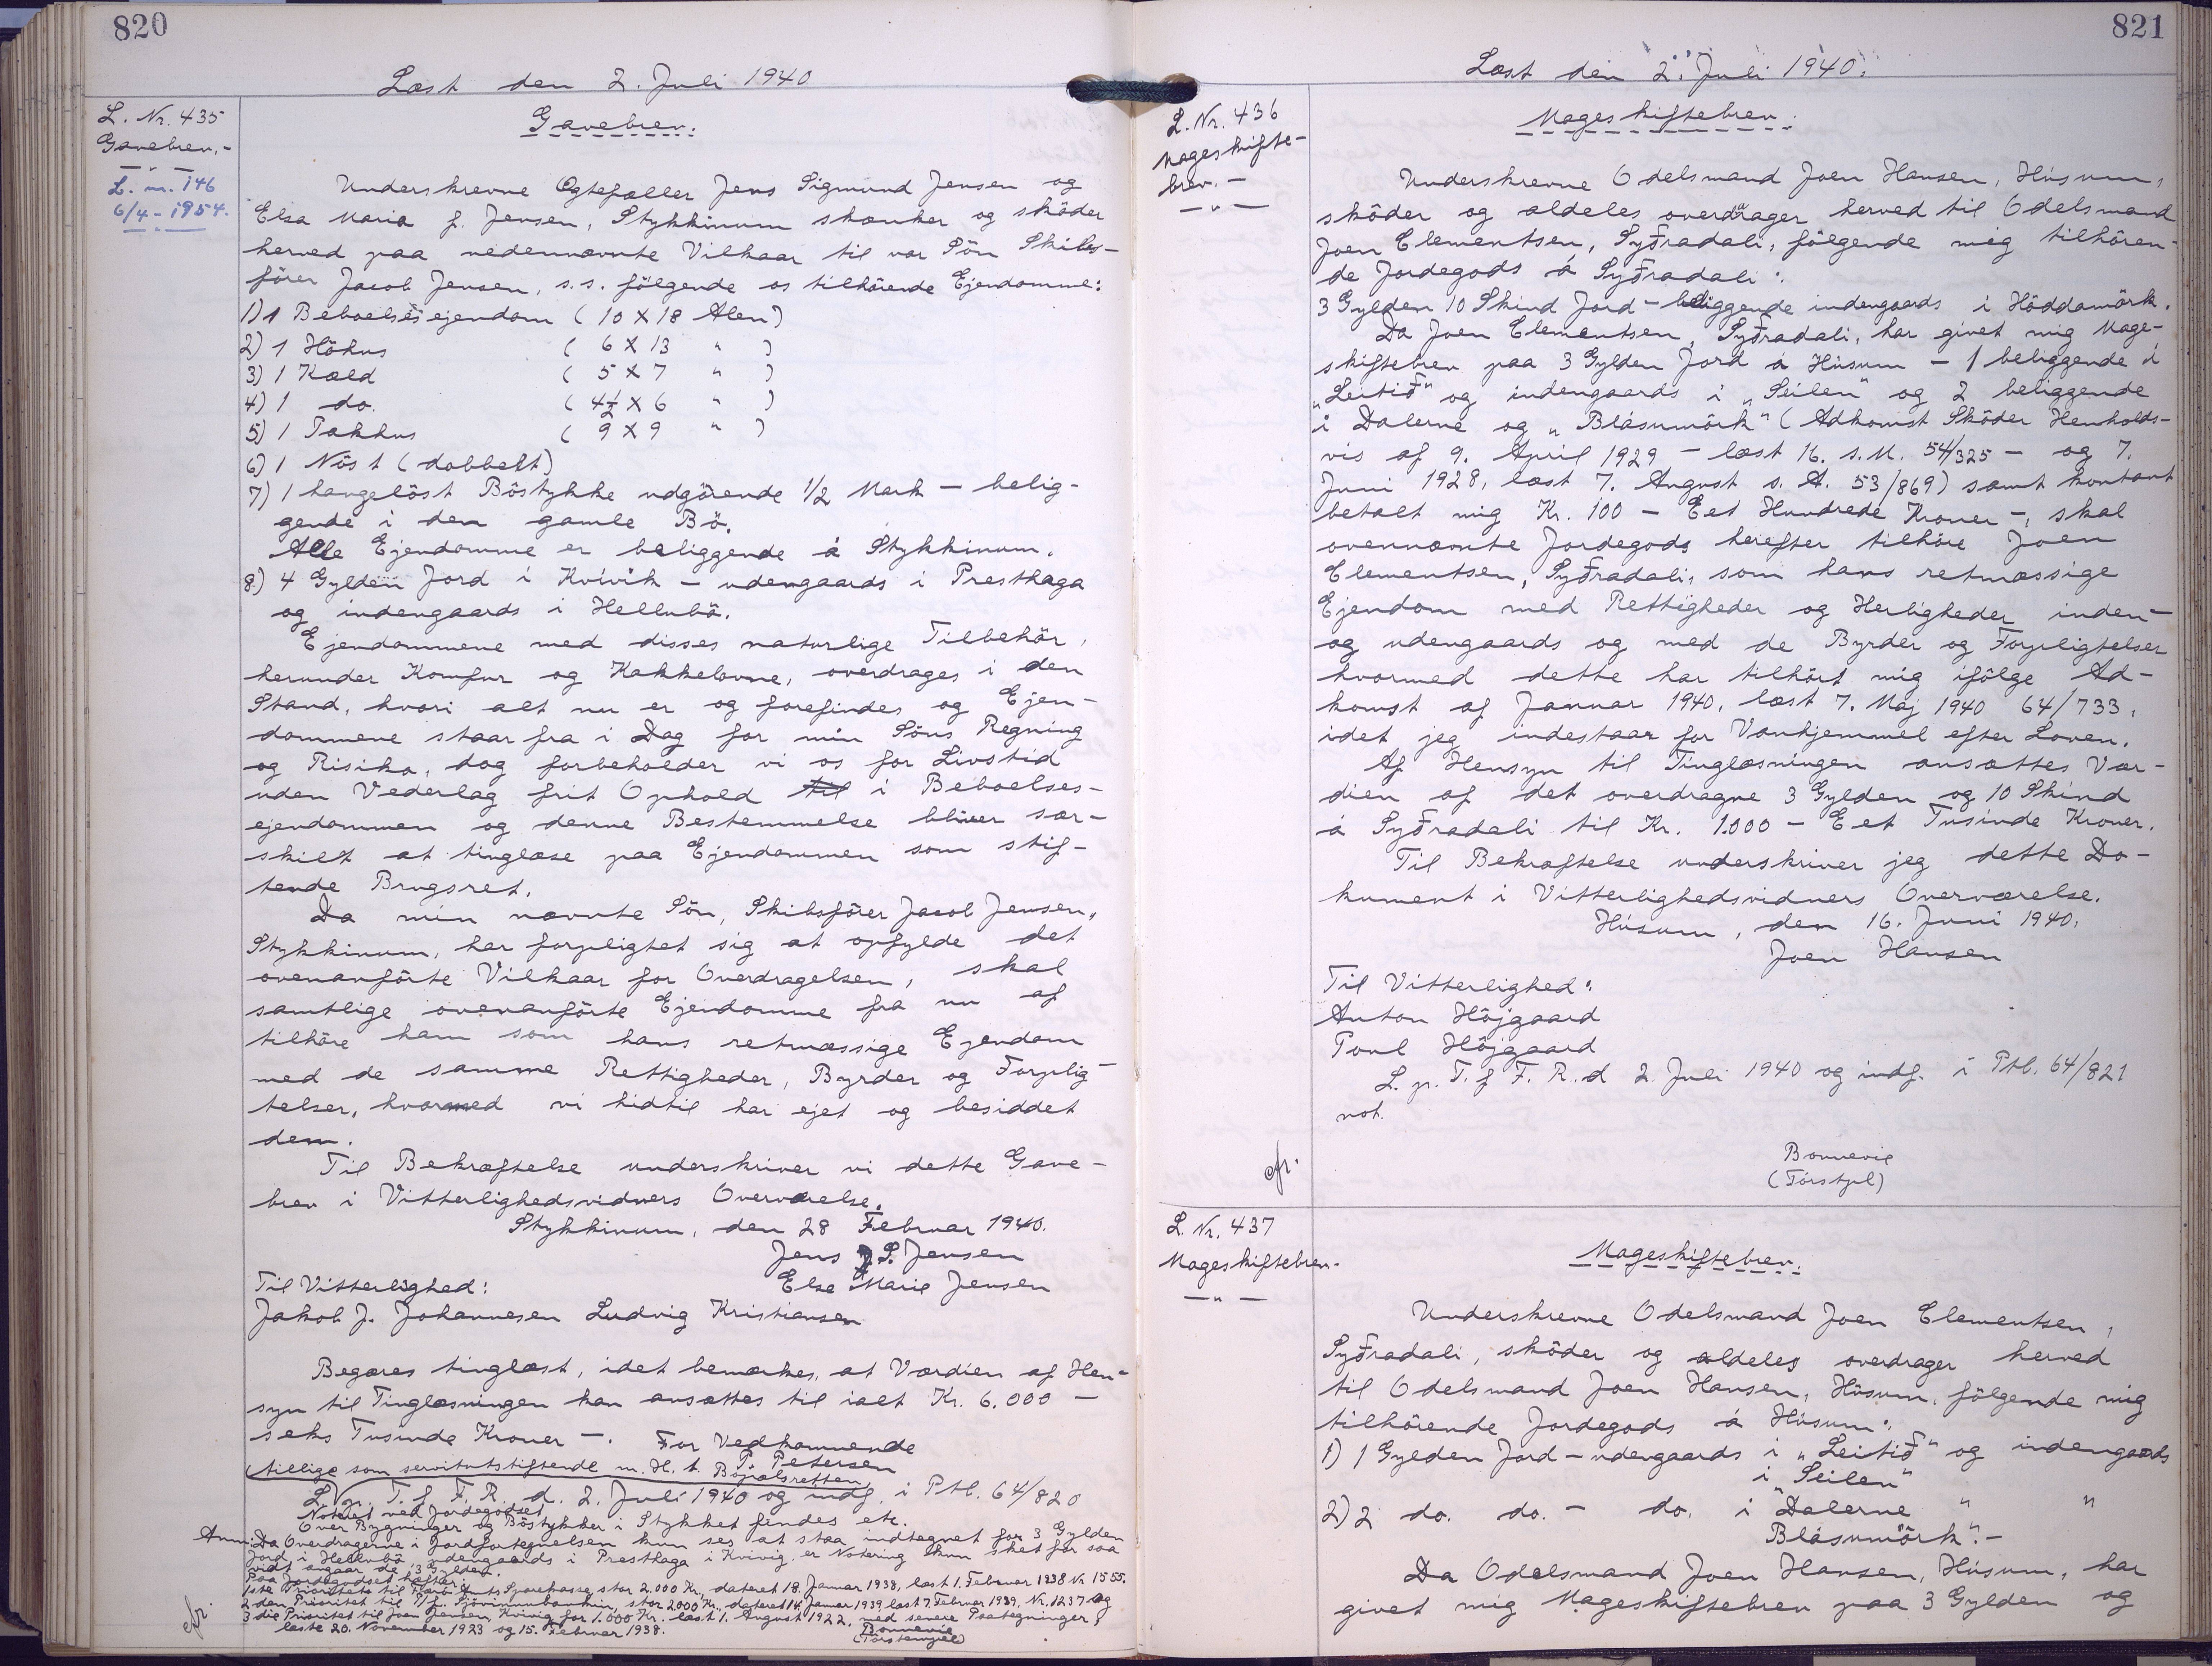 820
Læst den 2. Juli 1940
L. Nr. 435
Gavebrev.-
L. nr. 146
6/4-1954.
Gavebrev:
Underskrevne Ægtefæller Jens Sigmund Jensen og
Elsa Maria f. Jensen, Stykkinum skænker og sköder
herved paa nedennævnte Vilkaar til vor Sön Skibs-
förer Jacob Jensen, s.s. fölgende os tilhörende Ejendomme:
1) 1 Beboelsesejendom ( 10 X 18 Alen)
2) 1 Höhus ( 6 X 13 " )
3) 1 Kæld ( 5 X 7 " )
4) 1 do. ( 4½ X 6 " )
5) 1 Takhus ( 9 X 9 " )
6) 1 Nöst (dobbelt)
7) 1 haugelöst Böstykke udgörende 1/2 Mark - belig-
gende i den gamle Bö.
Alle Ejendomme er beliggende á Stykkinum.
8) 4 Gylden Jord i Kvívík - udengaards i Presthaga
og indengaards i Hellubö.
Ejendommene med disses naturlige Tilbehör,
herunder Komfur og Kakkelovne, overdrages i den
Stand, hvori alt nu er og forefindes og Ejen-
dommene staar fra i Dag for min Söns Regning
og Risiko, dog forbeholder vi os for Livstid
uden Vederlag frit Ophold til i Beboelses-
ejendommen og denne Bestemmelse bliver sær-
skilt at tinglæse paa Ejendommen som stif-
tende Brugsret.
Da min nævnte Sön, Skibsförer Jacob Jensen,
Stykkinum, har forpligtet sig at opfylde det
ovenanförte Vilkaar for Overdragelsen, skal
samtlige ovenanförte Ejendomme fra nu af
tilhöre ham som hans retmæssige Ejendom
med de samme Rettigheder, Byrder og Forplig-
telser, hvormed vi hidtil har ejet og besiddet
dem.
Til Bekræftelse underskriver vi dette Gave-
brev i Vitterlighedsvidners Overværelse.
Stykkinum, den 28 Februar 1940.
Jens S. Jensen
Til Vitterlighed: Else Marie Jensen
Jakob J. Johannesen Ludvig Kristiansen
Begæres tinglæst, idet bemærkes, at Værdien af Hen-
syn til Tinglæsningen kan ansættes til ialt Kr. 6.000 -
seks Tusinde Kroner -. For Vedkommende
P. Petersen
(tillige som servitutstiftende m. H. t. Böjælsretten
L. p. T. f. F. R. d. 2. Juli 1940 og indf. i Ptl. 64/820
Noteret ved Jordegodset
Over Bygninger og Böstykker i Stykket findes etc.
Anm: Da Overdragerne i Jordfortegnelsen kun ses at staa indtegnet for 3 Gylden
Jord i Hellubö, udengaards i Presthaga i Kvivig, er Notering kun sket for saa
vidt angaar de 3 Gylden.
Paa Jordegodset hæfter:
1ste Prioritets til Færö Amts Sparekasse, stor 2.000 Kr., dateret 18. Januar 1938, læst 1. Februar 1938 Nr. 1555.
2 den Prioritet til P/f. Sjóvinnubankin, stor 2000 Kr., dateret 14 Januar 1939, læst 7. Februar 1939, Nr. 1237 og
3 die Prioritet til Joen Jensen, Kvivig for 1.000 Kr. læst 1. August 1922, med senere Paategninger,
læste 20. November 1923 og 15. Februar 1938. Bonnevie
(Tórstempel)
821
Læst den 2. Juli 1940.
L. Nr. 436
Mageskifte-
brev.-
Mageskiftebrev.
Underskrevne Odelsmand Joen Hansen, Húsum,
sköder og aldeles overdrager herved til Odelsmand
Joen Clementsen, Syðradali, fölgende mig tilhören-
de Jordegods á Syðradali:
3 Gylden 10 Skind Jord - beliggende indengaards i Höddamörk.
Da Joen Clementsen, Syðradali, har givet mig Mage-
skiftebrev paa 3 Gylden Jord á Húsum - 1 beliggende í
"Leitið" og indengaards i "Seilen" og 2 beliggende
i Dalerne og "Blásumörk" (Adkomst Sköder Henholds-
vis af 9. April 1929 - læst 16. s. M. 54/325 - og 7.
Juni 1928, læst 7. August s. A. 53/869) samt kontant
betalt mig Kr. 100 - Eet Hundrede Kroner -, skal
ovennævnte Jordegods herefter tilhöre Joen
Clementsen, Syðradali, som hans retmæssige
Ejendom med Rettigheder og Herligheder inden-
og udengaards og med de Byrder og Forpligtelser
hvormed dette har tilhört mig ifölge Ad-
komst af Januar 1940, læst 7. Maj 1940 64/733,
idet jeg indestaar for Vanhjemmel efter Loven.
Af Hensyn til Tinglæsningen ansættes Vær-
dien af det overdragne 3 Gylden og 10 Skind
á Syðradali til Kr. 1.000 - Eet Tusinde Kroner.
Til Bekræftelse underskriver jeg dette Do-
kument i Vitterlighedsvidners Overværelse.
Húsum, den 16. Juni 1940.
Joen Hansen
Til Vitterlighed:
Anton Höjgaard
Poul Höjgaard
L. p. T. f F. R. d 2. Juli 1940 og indf. i Ptl. 64/821
not.
Bonnevie
(Tórstpl)
L. Nr. 437
Mageskiftebrev-
Mageskiftebrev.
Underskrevne Odelsmand Joen Clementsen,
Syðradali, sköder og aldeles overdrager herved
til Odelsmand Joen Hansen, Húsum, fölgende mig
tilhörende Jordegods á Húsum:
1) 1 Gylden Jord - udengaards i "Leitið" og indengaards
i "Seilen"
2) 2 do. do. - do. i "Dalerne " "
Blásumörk". -
Da Odelsmand Joen Hansen, Húsum, har
givet mig Mageskiftebrev paa 3 Gylden og